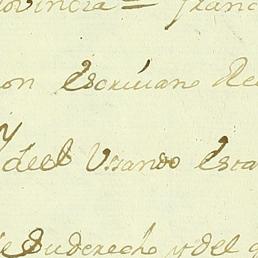 ovincia = franc
on Escriuano Re
y
deel Usando Esta
e Su derecho y del q